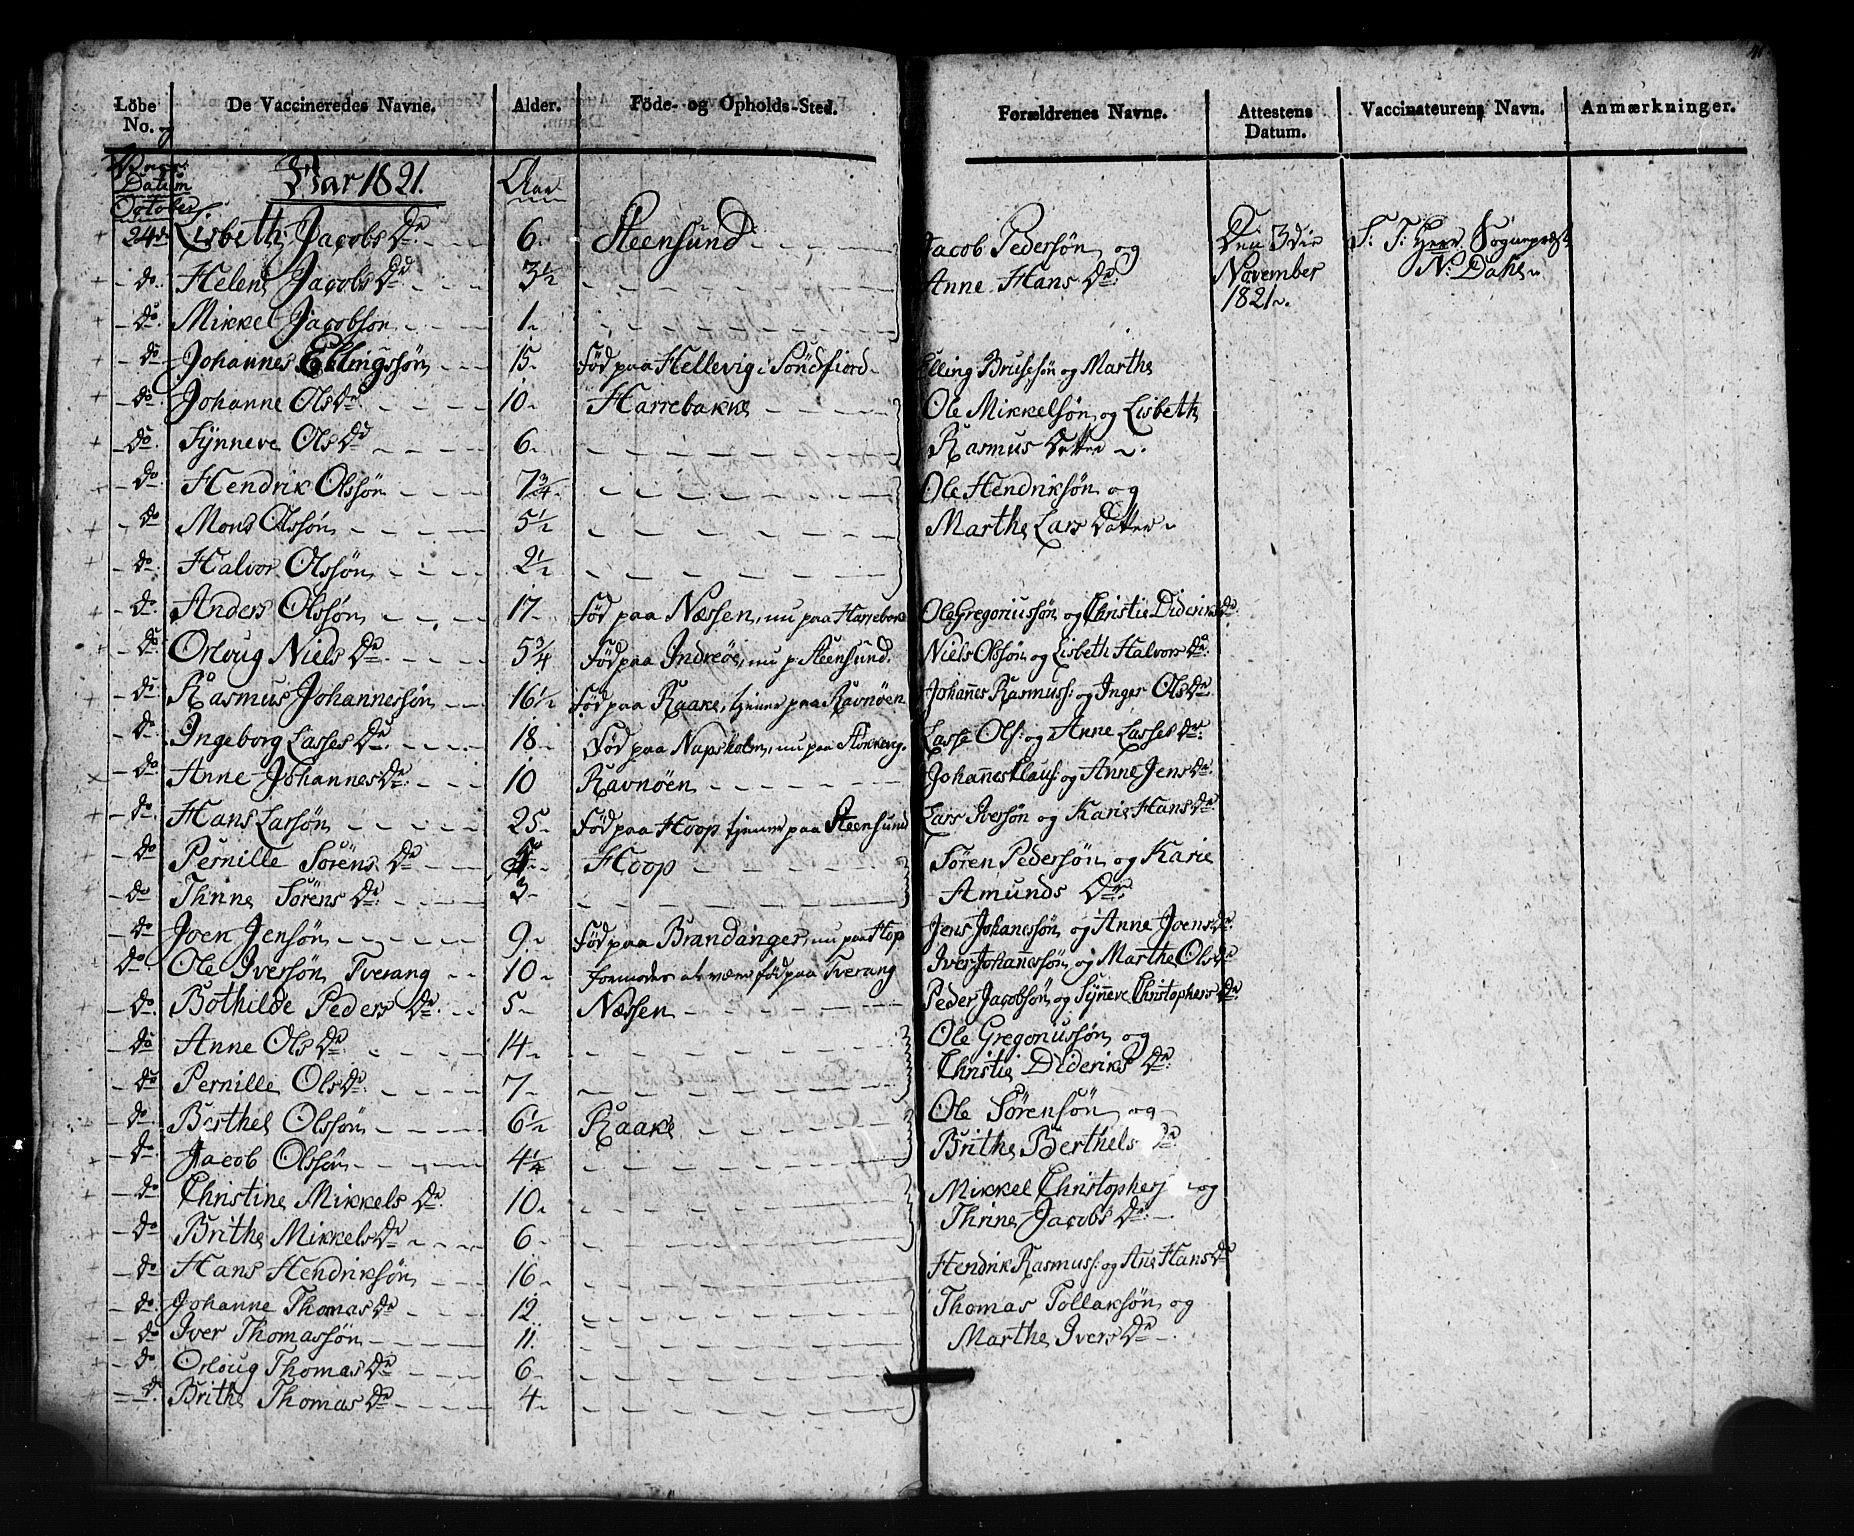 Löbe No. og De Vaccineredes Navne. Alder. Föde- og Opholds-Sted. Forældrenes Navne. Attestens Datum. Vaccinateurens Navn. Anmærkninger.
Datum Aar 1821. Aar
October
24de Lisbeth Jacobs Dr. 6. Steensund Jacob Pedersøn og Den 3die S. T. Herr Sognepræst
do Helene Jacobs Dr 3½ Anne Hans Dr. November N. Dahl
1821.
do Mikkel Jacobsøn 1.
do Johannes Ellingssøn 15. Fød paa Hellevig i Søndfiord Elling Brusesøn og Marthe
do Johanne Ols Dr. 10. Harrebakke Ole Mikkelsøn og Lisbeth
do Synneve Ols Dr 6. Rasmus Datter
do Hendrik Olssøn 7¾ Ole Hendriksøn og
do Mons Olssøn 5½ Marthe Lars Datter
do Halvor Olssøn 2½
do Anders Olssøn 17. Fød paa Næssen, nu paa Harrebakke Ole Gregoriussøn og Christie Dideriks Dr
do Orloug Niels Dr. 5¾ Fød paa Indreøe, nu p. Steensund. Niels Olssøn og Lisbeth Halvors Dr.
do Rasmus Johannessøn 16½ Fød paa Raake, tjener paa Ravnøen Johannes Rasmuss: og Inger Ols Dr
do Ingeborg Lasses Dr. 18. Fød paa Napsholm, nu paa Lasse Ols: og Anne Lasses Dr.
do Anne Johannes Dr. 10 Ravnøen Johannes Klaus: og Anne Jens Dr.
do Hans Larsøn 25. Fød paa Hoop tjener paa Steensund Lars Iversøn og Karie Hans Dr
do Pernille Sørens Dr Hoop Søren Pedersøn og Karie
do Thrine Sørens Dr. 3. Amunds Dr.
do Joen Jensøn 9. Fød paa Brandanger, nu paa Hop Jens Johanessøn og Anne Joens Dr
do Ole Iversøn Tverang 10. formodes at være fød paa Tverang Iver Johannessøn og Marthe Ols Dr
do Bothilde Peders Dr. 5. Næssen Peder Jacobsøn og Synneve Christophers Dr.
do Anne Ols Dr 14. Ole Gregoriussøn og
Christie Dideriks Dr.
do Pernille Ols Dr. 7.
do Berthel Olssøn 6½ Raake Ole Sørensøn og
do Jacob Olssøn 4¼ Brithe Berthels Dr.
do Christine Mikkels Dr. 10. Mikkel Christophers og
do Brithe Mikkels Dr 6. Thrine Jacobs Dr.
do Hans Hendriksøn 16. Hendrik Rasmuss: og Ane Hans Dr
do Johanne Thomas Dr 12. Thomas Tollaksøn og
do Iver Thomassøn 11. Marthe Ivers Dr.
do Orloug Thomas Dr 6.
do Brithe Thomas Dr 4.